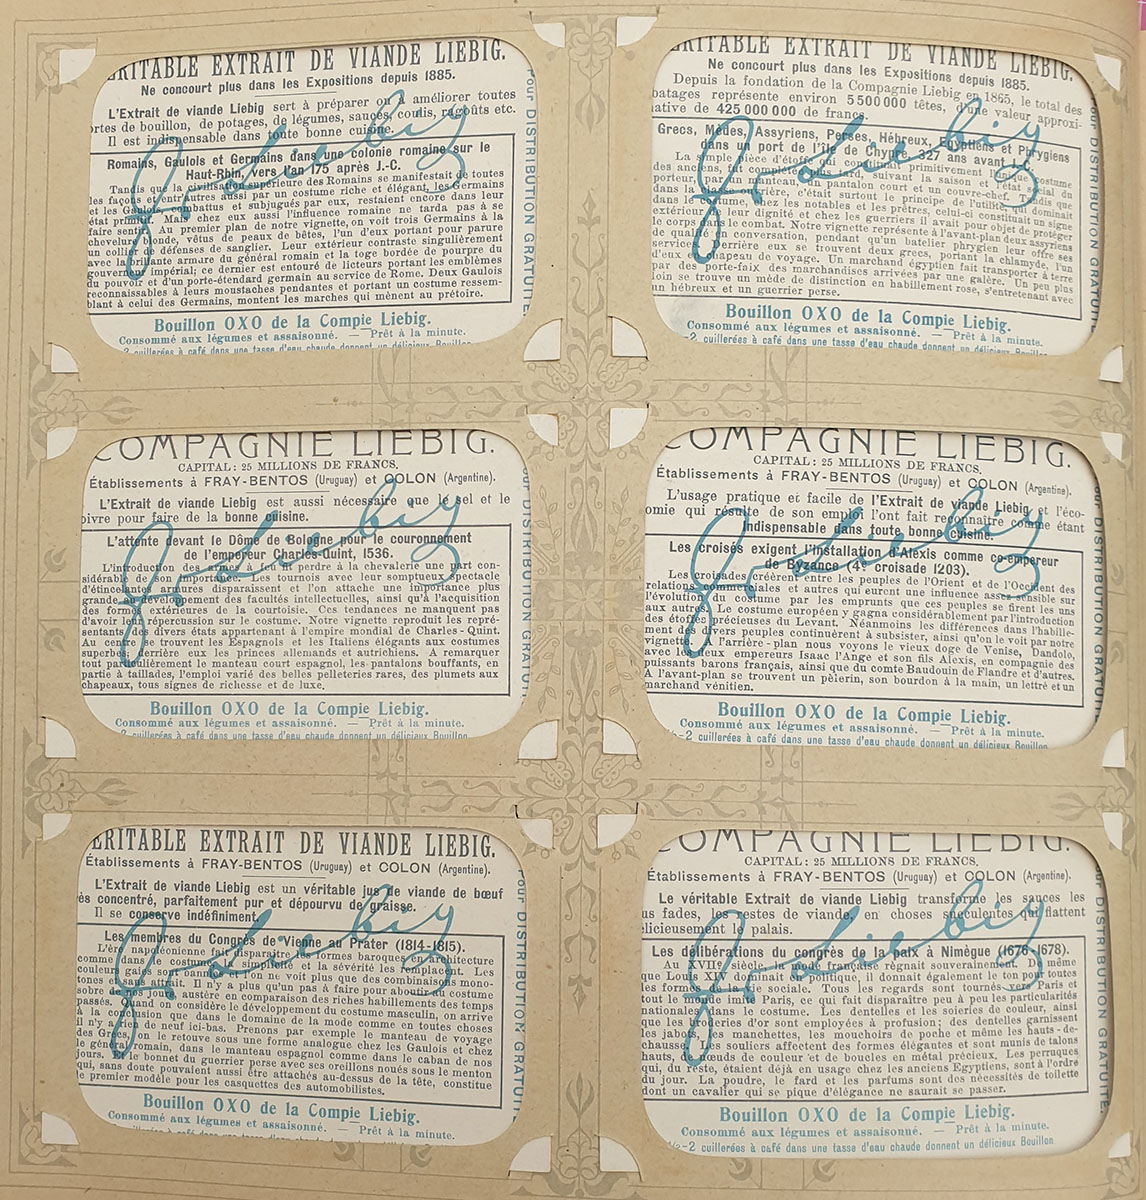 ÉRITABLE EXTRAIT DE VIANDE LIEBIG.
Ne concourt plus dans les Expositions depuis 1885.
L'Extrait de viande Liebig sert à préparer ou à améliorer toutes
ortes de bouillon, de potages, de légumes, sauces, coulis, ragoûts etc.
Il est indispensable dans toute bonne cuisine.
Romains, Gaulois et Germains dans une colonie romaine sur le
Haut-Rhin, vers l'an 175 après J.-C.
Tandis que la civilisation supérieure des Romains se manifestait de toutes
les façons et entr'autres aussi par un costume riche et élégant, les Germains
et les Gaulois, combattus et subjugués par eux, restaient encore dans leur
état primitif. Mais chez eux aussi l'influence romaine ne tarda pas à se
faire sentir. Au premier plan de notre vignette, on voit trois Germains à la
chevelure blonde, vêtus de peaux de bêtes, l'un d'eux portant pour parure
un collier de défenses de sanglier. Leur extérieur contraste singulièrement
avec la brillante armure du général romain et la toge bordée de pourpre du
gouverneur impérial; ce dernier est entouré de licteurs portant les emblèmes
du pouvoir et d'un porte-étendard germain au service de Rome. Deux Gaulois
reconnaissables à leurs moustaches pendantes et portant un costume ressem-
blant à celui des Germains, montent les marches qui mènent au prétoire.
Bouillon OXO de la Compie Liebig.
Consommé aux légumes et assaisonné. — Prêt à la minute.
-2 cuillerées à café dans une tasse d'eau chaude donnent un délicieux Bouillon
Pour DISTRIBUTION GRATUITE
Liebig
ÉRITABLE EXTRAIT DE VIANDE LIEBIG.
Ne concourt plus dans les Expositions depuis 1885.
Depuis la fondation de la Compagnie Liebig en 1865, le total des
batages représente environ 5 500 000 têtes, d'une valeur approxi-
ative de 425 000 000 de francs.
Grecs, Mèdes, Assyriens, Perses, Hébreux, Egyptiens et Phrygiens
dans un port de l'île de Chypre, 327 ans avant
La simple pièce d'étoffe qui constituait primitivement l'unique costume
des anciens, fut complétée plus tard, suivant la saison et l'état social du
porteur, par un manteau, un pantalon court et un couvre-chef. Tandis que
dans la vie ordinaire, c'était surtout le principe de l'utilité qui dominait
dans le costume, chez les notables et les prêtres, celui-ci constituait un signe
extérieur de leur dignité et chez les guerriers il avait pour objet de protéger
le corps dans le combat. Notre vignette représente à l'avant-plan deux assyriens
de qualité en conversation, pendant qu'un batelier phrygien leur offre ses
services. Derrière eux se trouvent deux grecs, portant la chlamyde, l'un
d'eux un chapeau de voyage. Un marchand égyptien fait transporter à terre
par des porte-faix des marchandises arrivées par une galère. Un peu plus
loin se trouve un mède de distinction en habillement rose, s'entretenant avec
un hébreux et un guerrier perse.
Bouillon OXO de la Compie Liebig.
Consommé aux légumes et assaisonné. — Prêt à la minute.
-2 cuillerées à café dans une tasse d'eau chaude donnent un délicieux Bouillon
Pour DISTRIBUTION GRATUITE
Liebig
COMPAGNIE LIEBIG.
CAPITAL: 25 MILLIONS DE FRANCS.
Établissements à FRAY-BENTOS (Uruguay) et COLON (Argentine).
L'Extrait de viande Liebig est aussi nécessaire que le sel et le
oivre pour faire de la bonne cuisine.
L'attente devant le Dôme de Bologne pour le couronnement
de l'empereur Charles-Quint, 1536.
L'introduction des armes à feu fit perdre à la chevalerie une part con-
sidérable de son importance. Les tournois avec leur somptueux spectacle
d'étincelantes armures disparaissent et l'on attache une importance plus
grande au développement des facultés intellectuelles, ainsi qu'à l'acquisition
des formes extérieures de la courtoisie. Ces tendances ne manquent pas
d'avoir leur répercussion sur le costume. Notre vignette reproduit les repré-
sentants de divers états appartenant à l'empire mondial de Charles-Quint.
Au centre se trouvent les Espagnols et les Italiens élégants aux costumes
superbes, derrière eux les princes allemands et autrichiens. A remarquer
tout particulièrement le manteau court espagnol, les pantalons bouffants, en
partie à taillades, l'emploi varié des belles pelleteries rares, des plumets aux
chapeaux, tous signes de richesse et de luxe.
Bouillon OXO de la Compie Liebig.
Consommé aux légumes et assaisonné. — Prêt à la minute.
-2 cuillerées à café dans une tasse d'eau chaude donnent un délicieux Bouillon
Pour DISTRIBUTION GRATUITE
Liebig
COMPAGNIE LIEBIG.
CAPITAL: 25 MILLIONS DE FRANCS.
Établissements à FRAY-BENTOS (Uruguay) et COLON (Argentine).
L'usage pratique et facile de l'Extrait de viande Liebig et l'éco-
omie qui résulte de son emploi l'ont fait reconnaître comme étant
indispensable dans toute bonne cuisine.
Les croisés exigent l'installation d'Alexis comme co-empereur
de Byzance (4e croisade 1203).
Les croisades créèrent entre les peuples de l'Orient et de l'Occident des
relations commerciales et autres qui eurent une influence assez sensible sur
l'évolution du costume par les emprunts que ces peuples se firent les uns
aux autres. Le costume européen y gagna considérablement par l'introduction
des étoffes précieuses du Levant. Néanmoins les différences dans l'habille-
ment des divers peuples continuèrent à subsister, ainsi qu'on le voit par notre
vignette. A l'arrière-plan nous voyons le vieux doge de Venise, Dandolo,
avec les deux empereurs Isaac l'Ange et son fils Alexis, en compagnie des
puissants barons français, ainsi que du comte Baudouin de Flandre et d'autres.
A l'avant-plan se trouvent un pèlerin, son bourdon à la main, un lettré et un
marchand vénitien.
Bouillon OXO de la Compie Liebig.
Consommé aux légumes et assaisonné. — Prêt à la minute.
-2 cuillerées à café dans une tasse d'eau chaude donnent un délicieux Bouillon
Pour DISTRIBUTION GRATUITE
Liebig
ÉRITABLE EXTRAIT DE VIANDE LIEBIG.
Établissements à FRAY-BENTOS (Uruguay) et COLON (Argentine).
L'Extrait de viande Liebig est un véritable jus de viande de bœuf
ès concentré, parfaitement pur et dépourvu de graisse.
Il se conserve indéfiniment.
Les membres du Congrès de Vienne au Prater (1814-1815).
L'ère napoléonienne fait disparaître les formes baroques. En architecture
comme dans le costume la simplicité et la sévérité les remplacent. Les
couleurs gaies sont bannies, on ne voit plus que des combinaisons mono-
tones et sans attrait. Il n'y a plus qu'un pas à faire pour aboutir au costume
sobre de nos jours, austère en comparaison des riches habillements des temps
passés. Quand on considère le développement du costume masculin, on arrive
à la conclusion que dans le domaine de la mode comme en toutes choses
il n'y a rien de neuf ici-bas. Prenons par exemple le manteau de voyage
des Grecs, on le retrouve sous une forme analogue chez les Gaulois et chez
le général romain, dans le manteau espagnol comme dans le caban de nos
jours. Et le bonnet du guerrier perse avec ses oreillons noués sous le menton
qui, sans doute pouvaient aussi être attachés au-dessus de la tête, constitue
le premier modèle pour les casquettes des automobilistes.
Bouillon OXO de la Compie Liebig.
Consommé aux légumes et assaisonné. — Prêt à la minute.
Pour DISTRIBUTION GRATUITE
Liebig
COMPAGNIE LIEBIG.
CAPITAL: 25 MILLIONS DE FRANCS.
Établissements à FRAY-BENTOS (Uruguay) et COLON (Argentine).
Le véritable Extrait de viande Liebig transforme les sauces les
us fades, les restes de viande, en choses succulentes qui flattent
élicieusement le palais.
Les délibérations du congrès de la paix à Nimègue (1676-1678).
Au XVIIe siècle, la mode française régnait souverainement. De même
que Louis XIV dominait en politique, il donnait également le ton pour toutes
les formes de la vie sociale. Tous les regards sont tournés vers Paris et
tout le monde imite Paris, ce qui fait disparaître peu à peu les particularités
nationales dans le costume. Les dentelles et les soieries de couleur, ainsi
que les broderies d'or sont employées à profusion; des dentelles garnissent
les jabots, les manchettes, les mouchoirs de poche et même les hauts-de-
chausse. Les souliers affectent des formes élégantes et sont munis de talons
hauts, de nœuds de couleur et de boucles en métal précieux. Les perruques
qui, du reste, étaient déjà en usage chez les anciens Egyptiens, sont à l'ordre
du jour. La poudre, le fard et les parfums sont des nécessités de toilette
dont un cavalier qui se pique d'élégance ne saurait se passer.
Bouillon OXO de la Compie Liebig.
Consommé aux légumes et assaisonné. — Prêt à la minute.
-2 cuillerées à café dans une tasse d'eau chaude donnent un délicieux Bouillon
Pour DISTRIBUTION GRATUITE.
Liebig